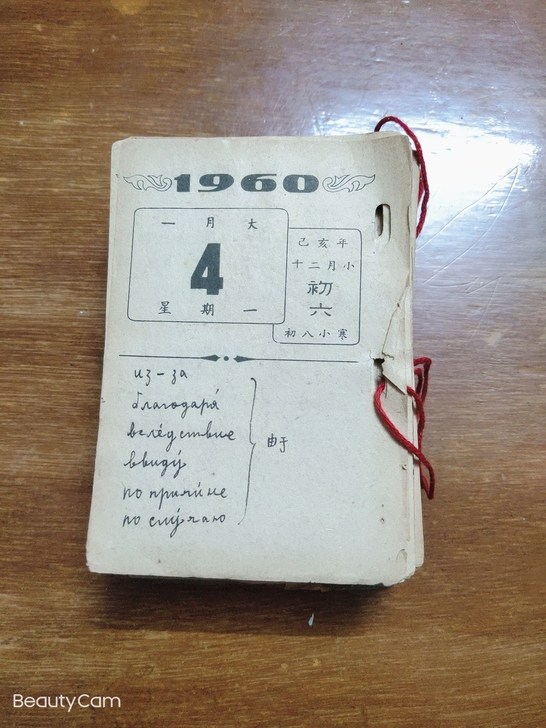 1960
一 月 大
4
星 期 一
己 亥 年
十 二 月 小
初
六
初 八 小 寒
из-за
благодаря́
всле́дствие
ввиду́
по причи́не
по слу́чаю
由于
BeautyCam